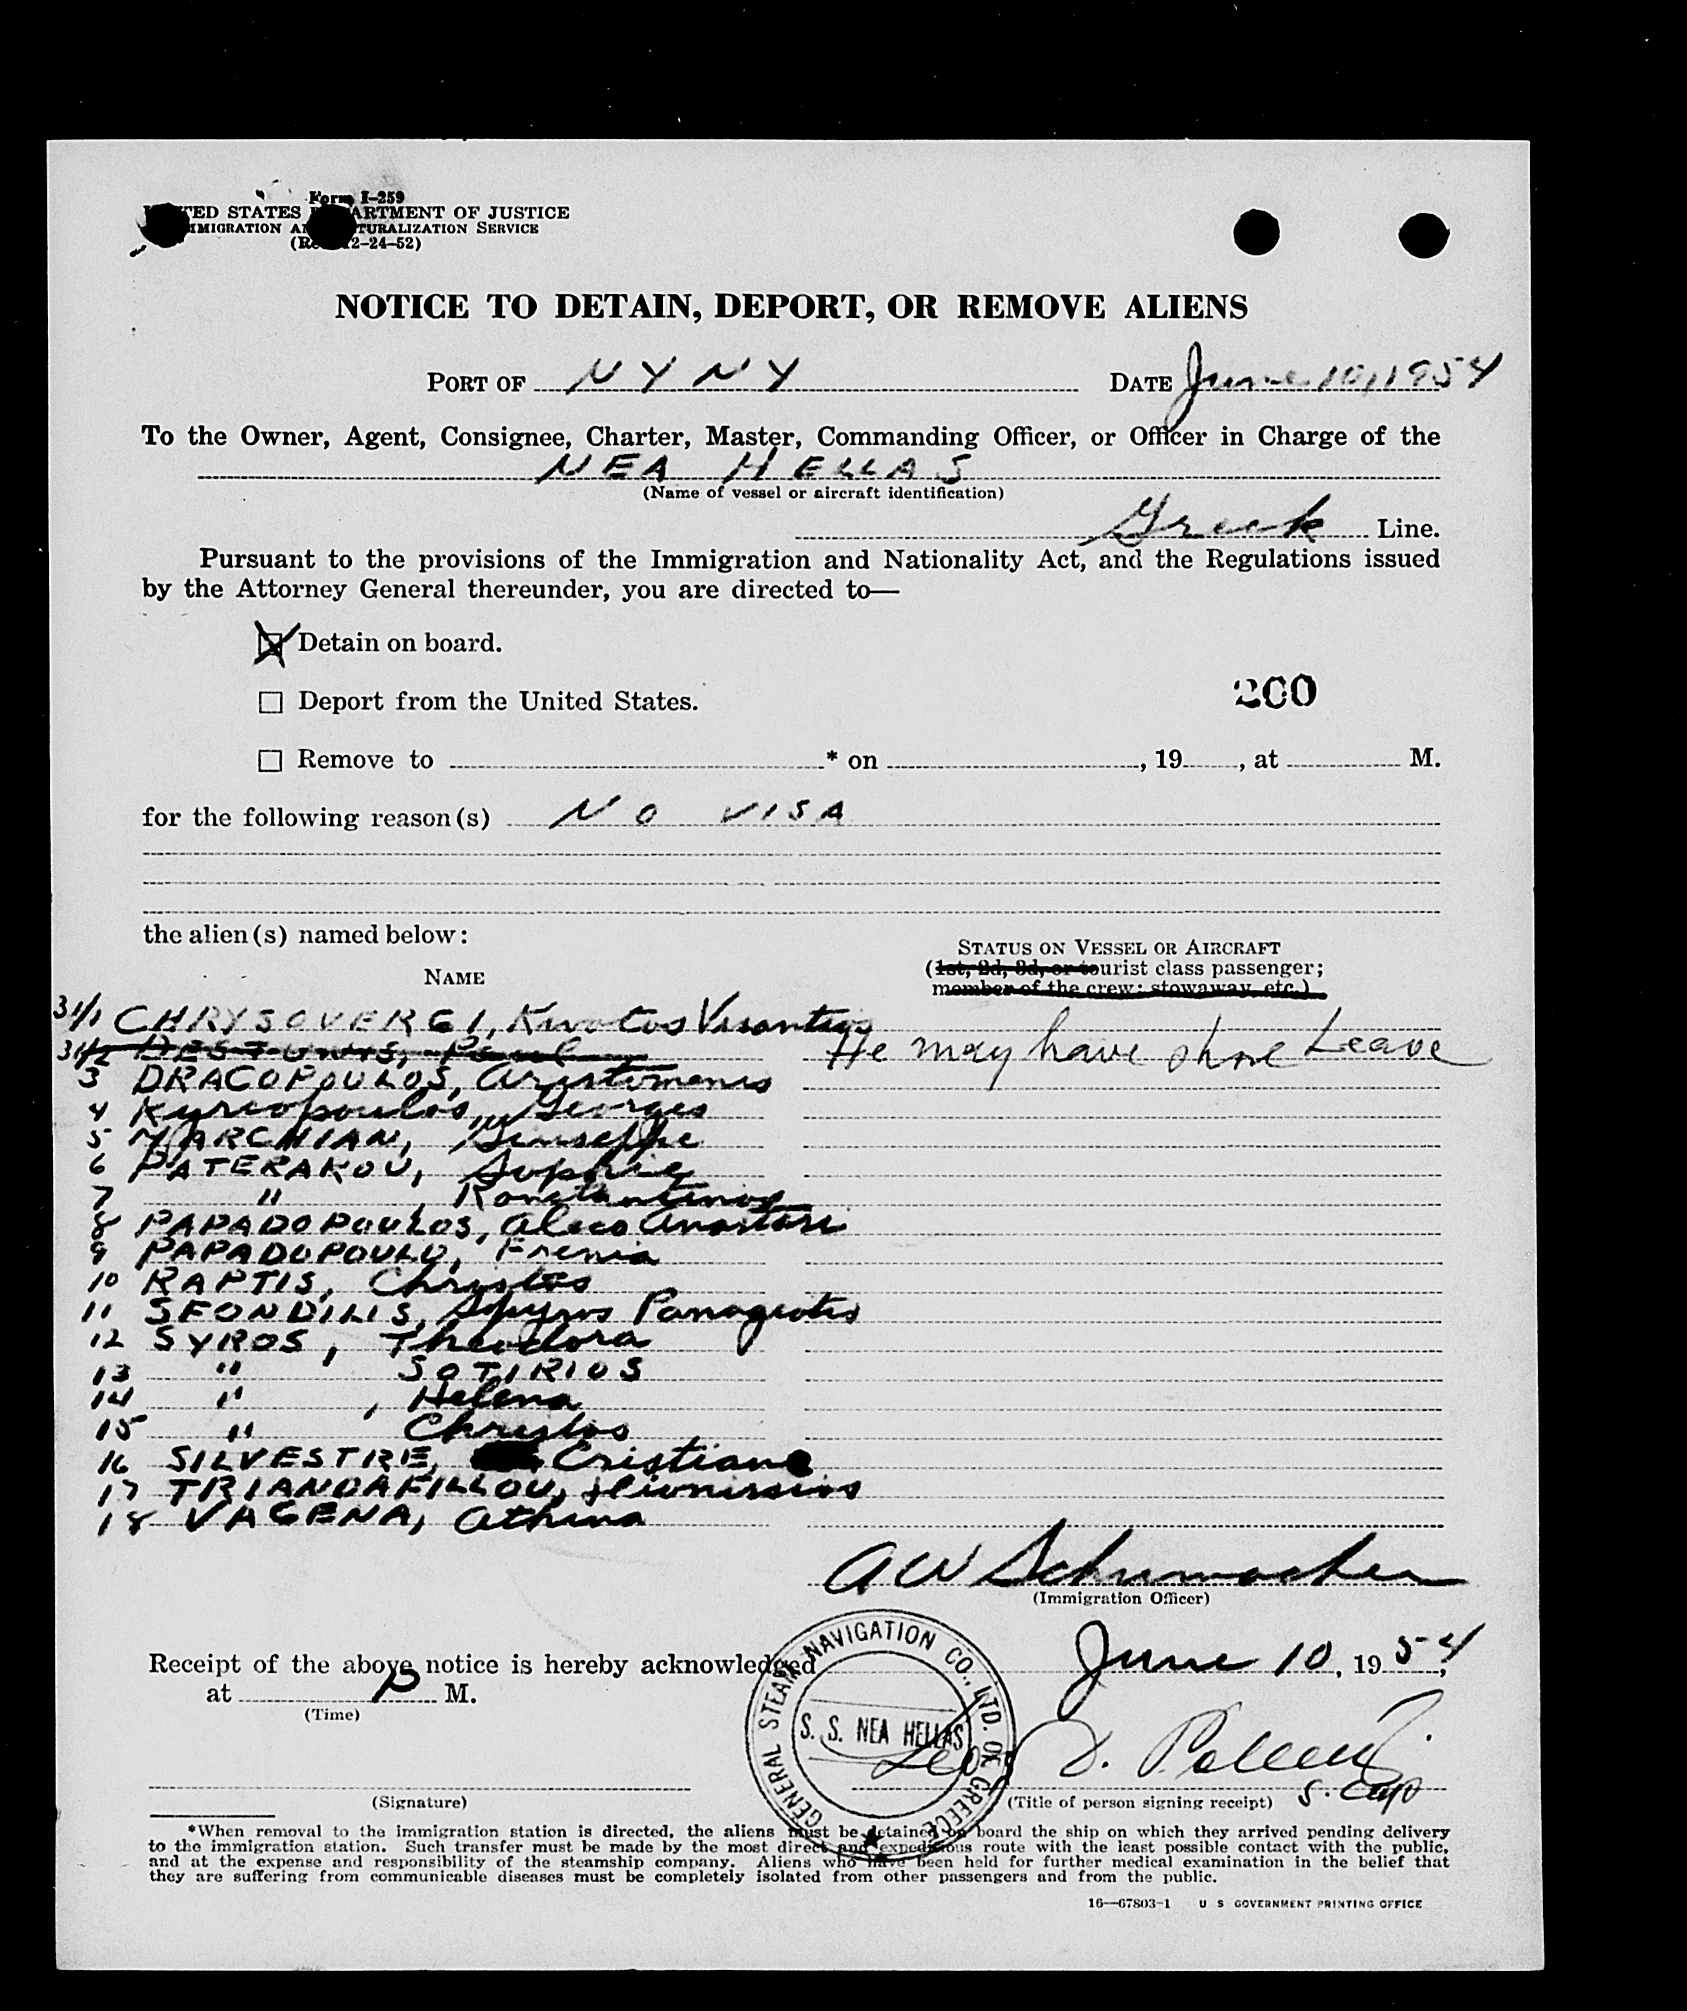 Form I-259
UNITED STATES DEPARTMENT OF JUSTICE
IMMIGRATION AND NATURALIZATION SERVICE
(Rev. 12-24-52)
NOTICE TO DETAIN, DEPORT, OR REMOVE ALIENS
PORT OF N Y N Y DATE June 10, 1954
To the Owner, Agent, Consignee, Charter, Master, Commanding Officer, or Officer in Charge of the
NEA HELLAS
(Name of vessel or aircraft identification)
Greek Line.
Pursuant to the provisions of the Immigration and Nationality Act, and the Regulations issued
by the Attorney General thereunder, you are directed to—
Detain on board.
Deport from the United States.
200
Remove to * on , 19 , at M.
for the following reason(s) NO VISA
the alien(s) named below:
STATUS ON VESSEL OR AIRCRAFT
NAME
(1st, 2d, 3d, or tourist class passenger;
member of the crew; stowaway, etc.)
31/1 CHRYSOVERGI,
31/2 DESTUNIS, Paul He may have shore Leave
3 DRACOPOULOS, Aristomenis
4 Kyreopoulos, Georges
5 MARCHIAN, Giuseppe
6 PATERAKOU, Sophie
7 " , Konstantinos
8 PAPADOPOULOS, Aleco Anastasi
9 PAPADOPOULO,
10 RAPTIS, Christos
11 SFONDILIS, Spyros Panagiotis
12 SYROS, Theodora
13 " SOTIRIOS
14 " , Helena
15 " Christos
16 SILVESTRE, Cristiane
17 TRIANDAFILLOU, Dionissios
18 VAGENA, Athina
A W Schumacher
(Immigration Officer)
Receipt of the above notice is hereby acknowledged June 10, 1954,
at P M.
(Time)
GENERAL STEAM NAVIGATION CO., LTD. OF GREECE
S. S. NEA HELLAS
(Signature) (Title of person signing receipt)
*When removal to the immigration station is directed, the aliens must be detained on board the ship on which they arrived pending delivery
to the immigration station. Such transfer must be made by the most direct and expeditious route with the least possible contact with the public,
and at the expense and responsibility of the steamship company. Aliens who have been held for further medical examination in the belief that
they are suffering from communicable diseases must be completely isolated from other passengers and from the public.
16—67803-1 U S GOVERNMENT PRINTING OFFICE